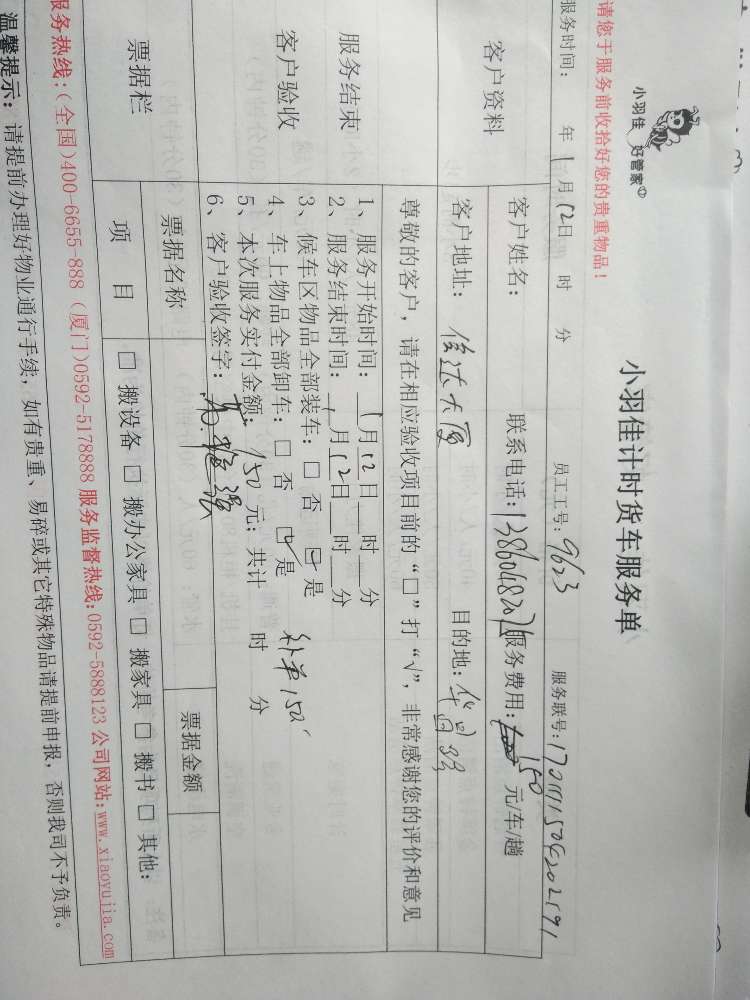 请您于服务前收拾好您的贵重物品！
小羽佳 好管家
小羽佳计时货车服务单
服务时间： 年 1月12日 时 分 员工工号：9623 服务联号：
客户资料
客户姓名： 联系电话： 服务费用：150 元/车/趟
客户地址：信达大厦 目的地：华昌
服务结束
客户验收
尊敬的客户，请在相应验收项目前的“□”打“√”，非常感谢您的评价和意见
1、服务开始时间：1月12日__时__分
2、服务结束时间：1月12日__时__分
3、候车区物品全部装车：□ 否 ☑ 是
4、车上物品全部卸车：□ 否 ☑ 是 补单150
5、本次服务实付金额：150 元；共计 时 分
6、客户验收签字：
票据栏
票据名称 票据金额
项 目 □ 搬设备 □ 搬办公家具 □ 搬家具 □ 搬书 □ 其他：
服务热线：(全国)400-6655-888 (厦门)0592-5178888 服务监督热线：0592-5888123 公司网站：www.xiaoyujia.com
温馨提示：请提前办理好物业通行手续，如有贵重、易碎或其它特殊物品请提前申报，否则我司不予负责。